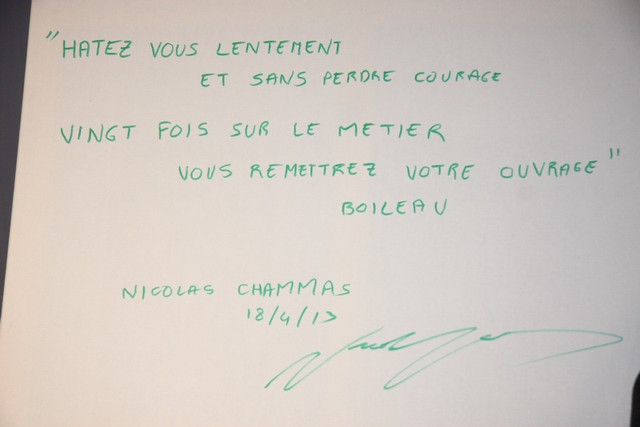 "HATEZ VOUS LENTEMENT
ET SANS PERDRE COURAGE
VINGT FOIS SUR LE METIER
VOUS REMETTREZ VOTRE OUVRAGE"
BOILEAU
NICOLAS CHAMMAS
18/4/13